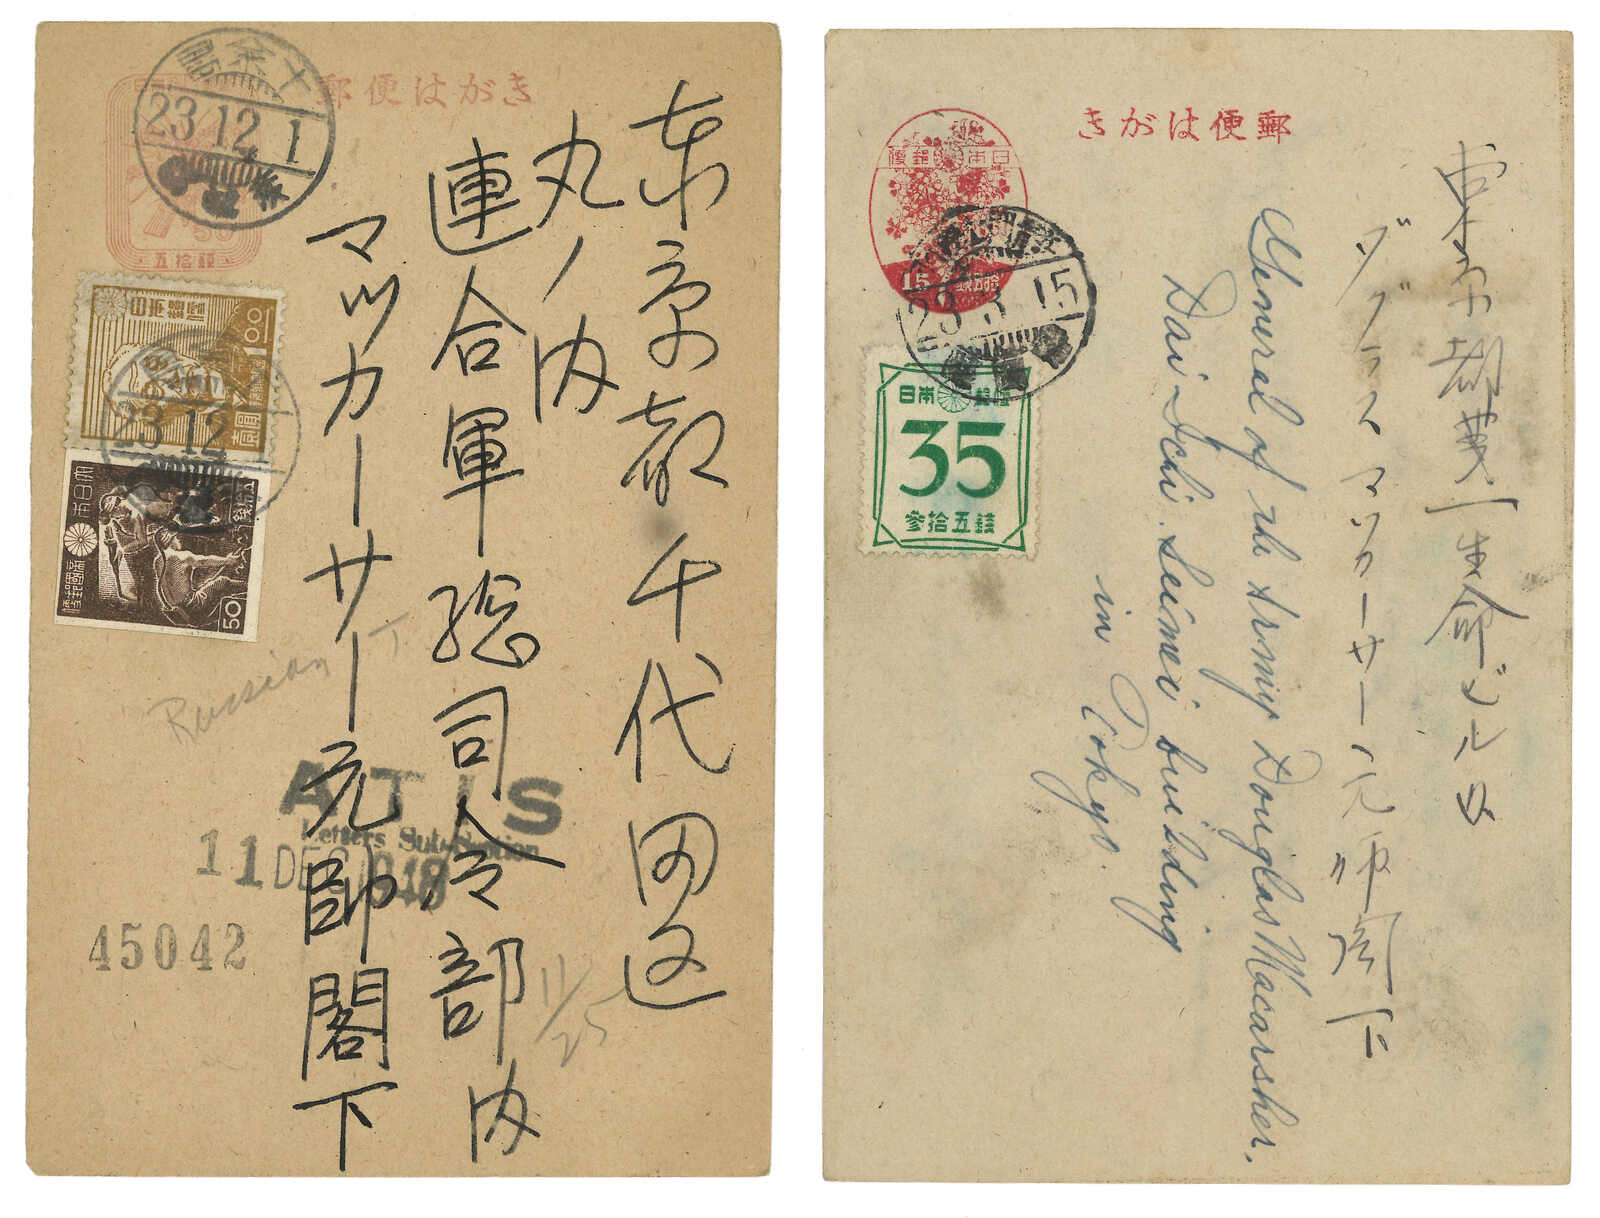 郵便はがき
23.12.1
五拾錢
日本郵便
1.00
壹圓
23.12
日本
五拾錢
大日本帝國郵便
50
東京都千代田区
丸ノ内
連合軍総司令部内
マツカーサー元帥閣下
Russian T
ATIS
Letters Sub-Section
11 DEC 1948
45042
11/25
郵便はがき
日本郵便
15
23.3.15
日本郵便
35
参拾五錢
東京都第一生命ビル内
ダグラスマツカーサー元帥閣下
General of the Army Douglas Macarsher.
Dai Ichi Seimei building
in Tokyo.